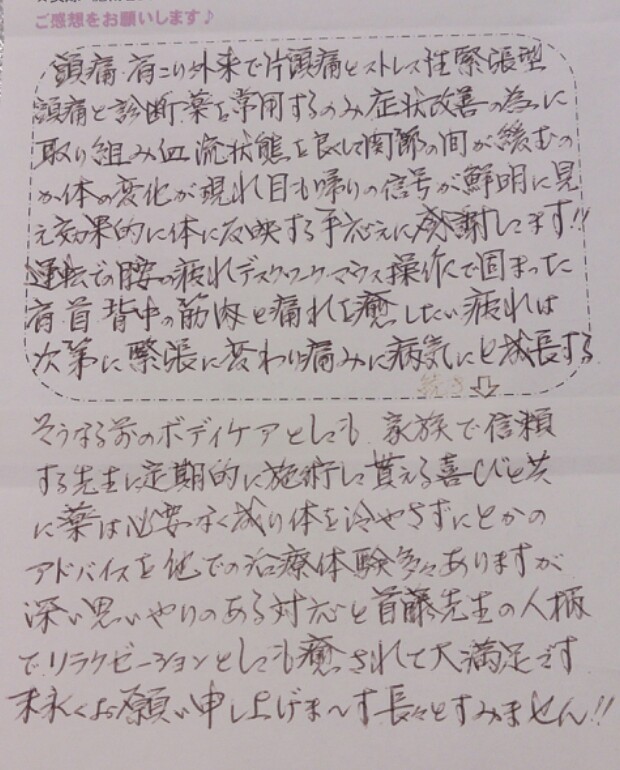 ご感想をお願いします♪
頭痛・肩こり外来で片頭痛とストレス性緊張型
頭痛と診断薬を常用するのみ症状改善の為に
取り組み血流状態を良くして関節の間が緩むの
か体の変化が現れ目も帰りの信号が鮮明に見
え効果的に体に反映する手応えに感謝してます!!
運転での腰の疲れデスクワーク・マウス操作で固まった
肩・首・背中の筋肉と痛れを癒したい疲れは
次第に緊張に変わり痛みに病気にと成長する
続き⇩
そうなる前のボディケアとしても家族で信頼
する先生に定期的に施術して貰える喜びと共
に薬は必要なく成り体を冷やさずにとかの
アドバイスを他での治療体験多々ありますが
深い思いやりのある対応と首藤先生の人柄
でリラクゼーションとしても癒されて大満足です
末永くお願い申し上げま〜す長々とすみません!!